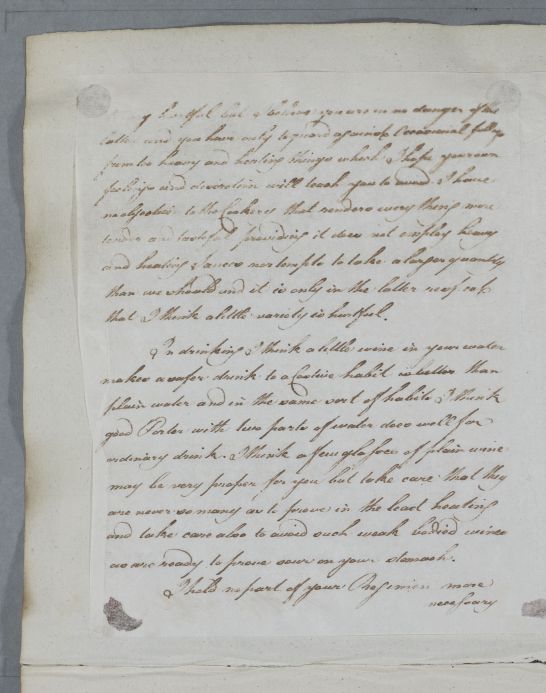 hurtful but I believe you are in no danger of the
latter and you have only to guard against occasional fulness
from too heavy and heating things which I hope your own
feelings and discretion will teach you to avoid. I have
no objection to the Cookery that renders every thing more
tender and tastefull providing it does not employ heavy
and heating Sauces nor tempts to take a larger quantity
than we should and it is only in the latter respect
that I think a little variety is hurtfull.
In drinking I think a little wine in your water
makes a safer drink to a Costive habit is better than
plain water and in the same sort of habits I think
good Porter with two parts of water does well for
ordinary drink. I think a few glasses of plain wine
may be very proper for you but take care that they
are never so many as to prove in the least heating
and take care also to avoid such weak bodied wines
as are ready to prove sour on your stomach.
I hold no part of your Regimen more
necessary